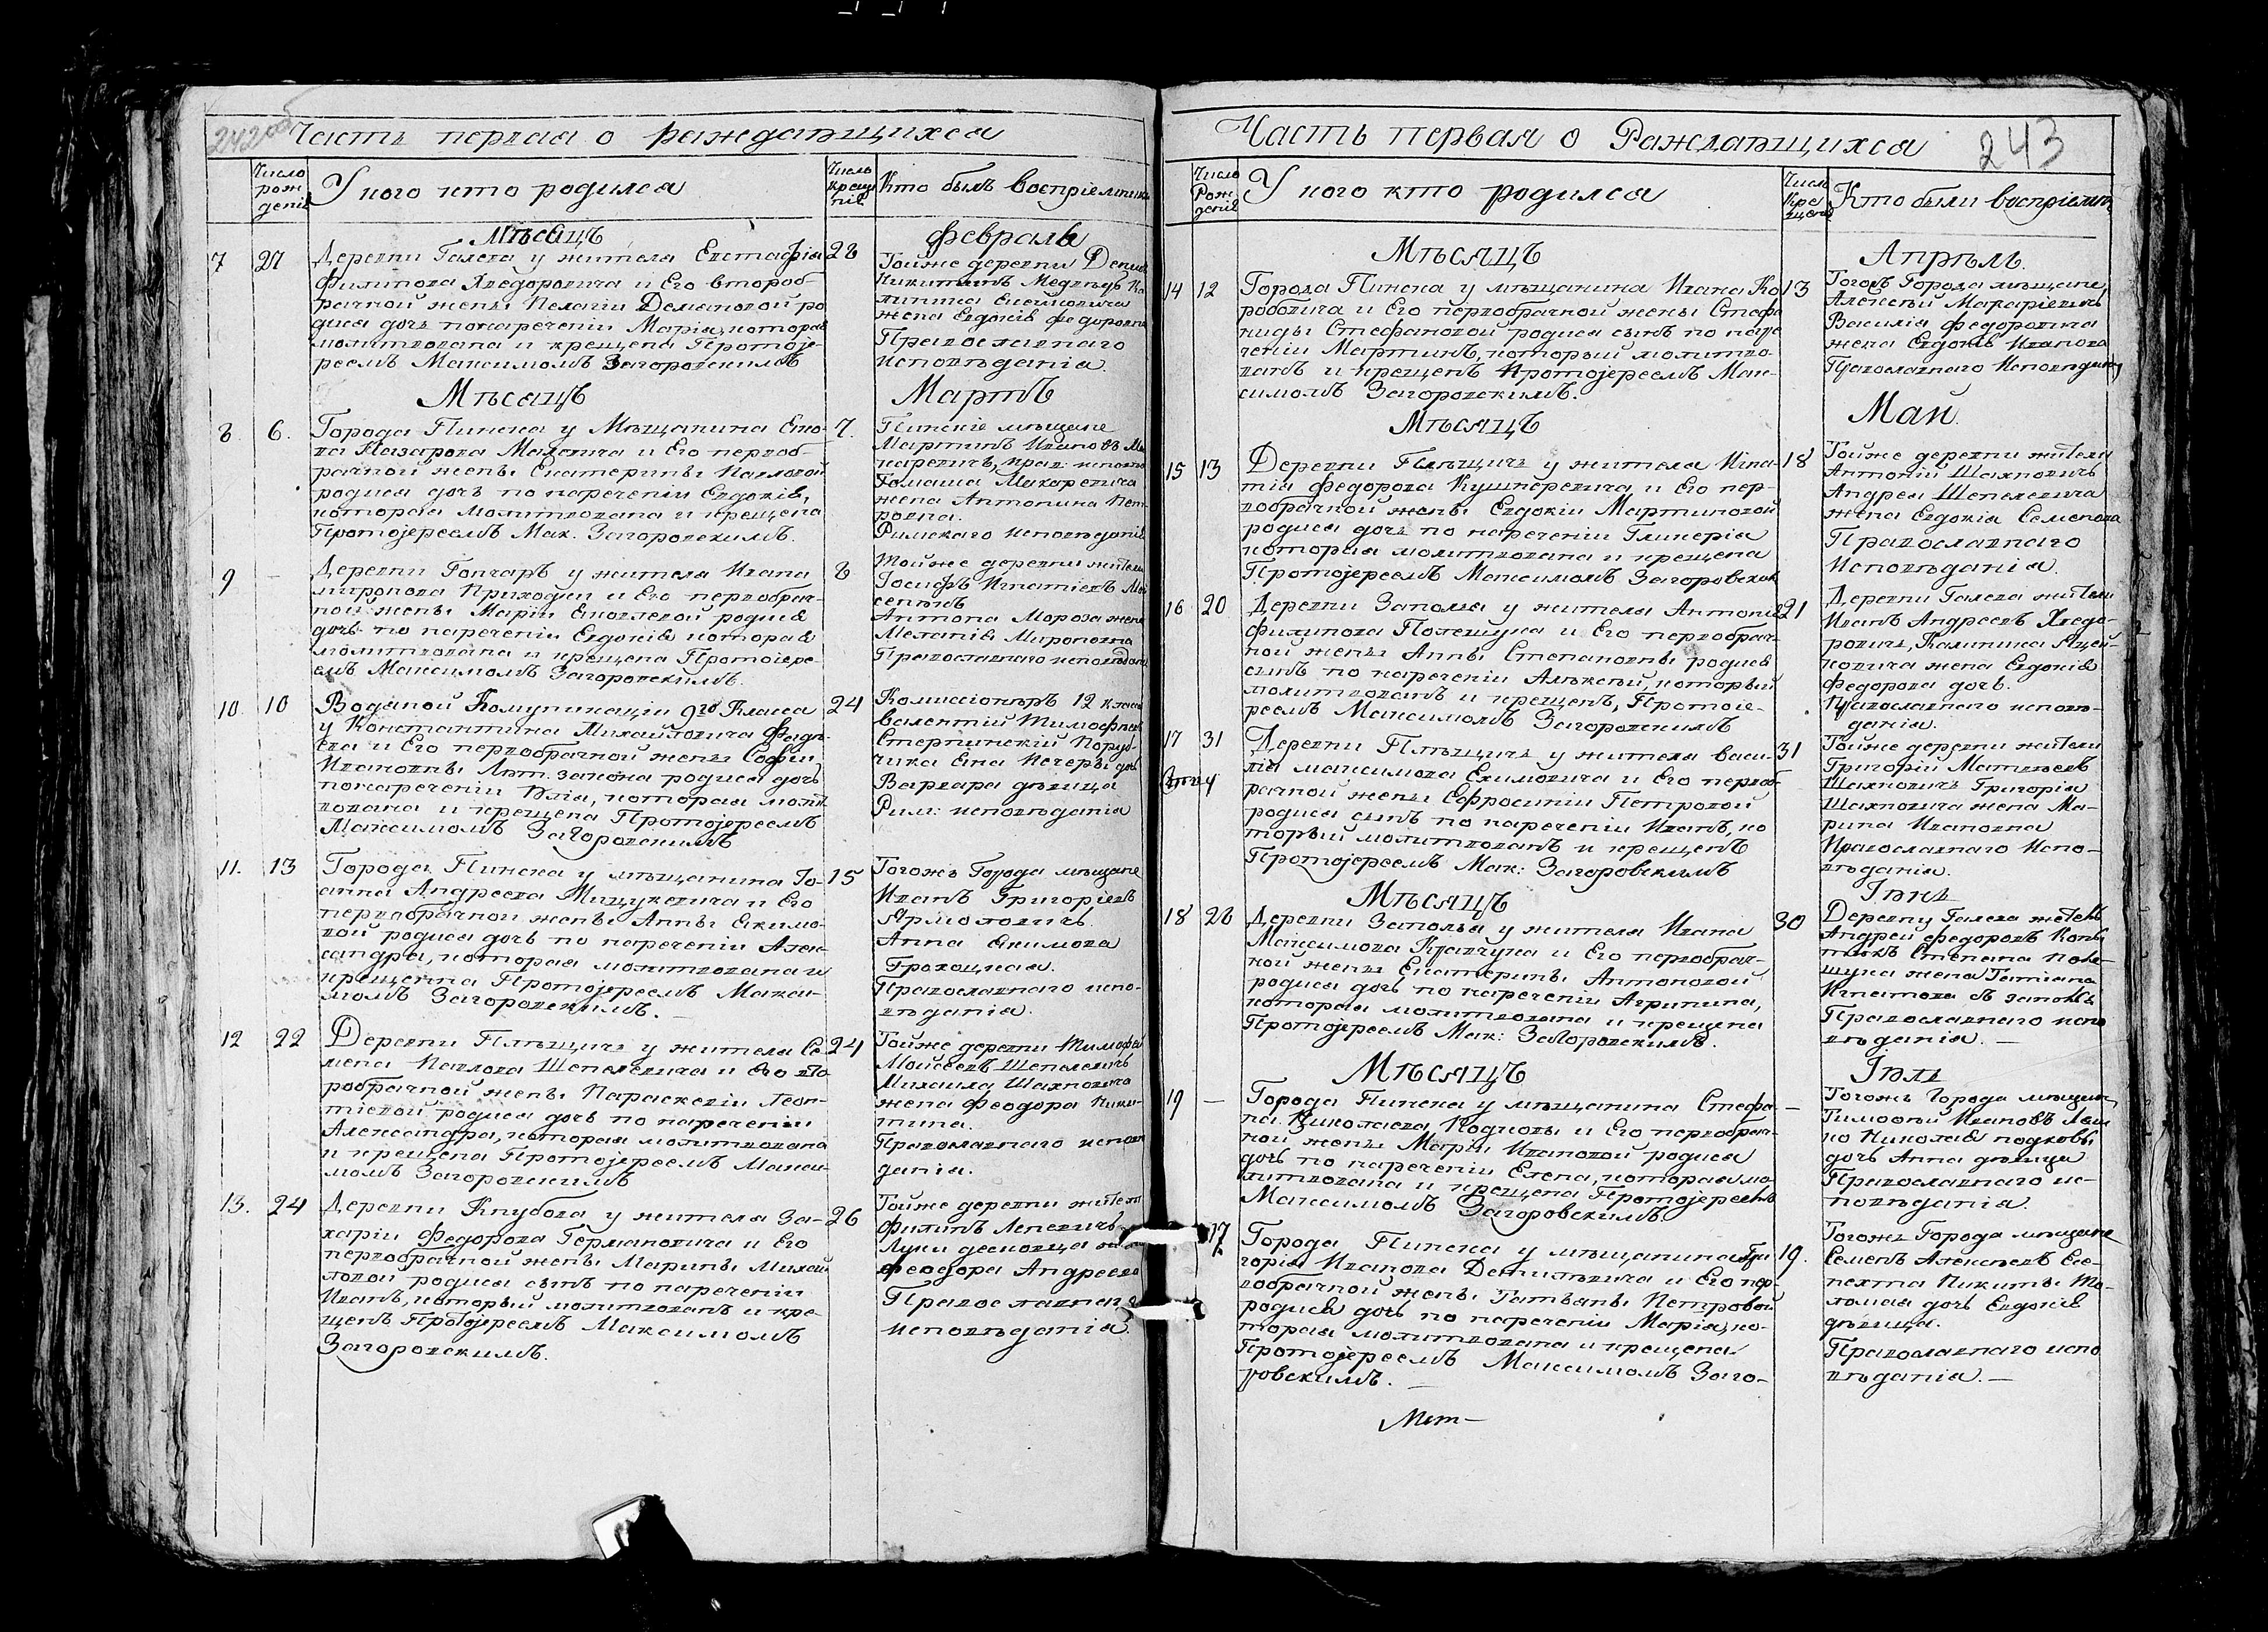 242об
Часть первая о раждающихся
Число рож денія
У кого кто родился
Число креще нія
Кто былъ воспріемник
Мѣсяцъ
Февраль
7
27
Деревни Галева у жителя Евстафія
Филипова Хведоровича и Его второб-
рачной жены Пелагіи Демановой ро
дися дочь понаречении Марія, которая
молитвована и крещена Протоіе-
реемъ Максимомъ Загоровскимъ
28
Тойже деревни Денис
Никитинъ
жена Евдокія Федоровна
Православнаго
исповѣданія.
Мѣсяцъ
Мартъ
8.
6.
Города Пинска у Мѣщанина
Назарова и Его первоб-
рачной жены Екатерины Павловой
родися дочь по наречении Евдокія,
которая молитвована и крещена
Протоіереемъ Мак. Загоровскимъ.
7.
Пинскіе мѣщане
Мартинъ Ивановъ Ма
каревичъ, прав: исповѣ
Томаша Макаревича
жена Антонина Пет-
ровна.
Римскаго исповѣданія
9
–
Деревни Гончаръ у жителя Ивана
Миронова Приходки и Его первобрач-
ной жены Маріи родися
дочь по наречении Евдокія которая
молитвована и крещена Протоіере-
емъ Максимомъ Загоровскимъ.
8
Тойже деревни жители
Іосифъ Игнатіевъ
Антона Мороза жена
Меланія Мироновна
Православнаго исповѣдан
10.
10
Водяной Комуникаціи 9го Класса
у Константина Михайловича
и Его первобрачной жены Софіи
Ивановны Лют. закона родися дочь
понаречении Юлія, которая моли
вована и крещена Протоіереемъ
Максимомъ Загоровскимъ
24
Комиссіонеръ 12 класса
Валентій Тимофѣев
Стерпинскій Пору-
чика
Варвара дѣвица
Рим: исповѣданія
11.
13
Города Пинска у мѣщанина Іо-
анна Андреева Мицукевича и Его
первобрачной жены Анны Якимо-
вой родися дочь по наречении Алек-
сандра, которая молитвована и
крещенна Протоіереемъ Макси-
момъ Загоровскимъ. –
15
Тогожъ Города мѣщане
Иванъ Григоріевъ
Ярмоловичъ.
Анна Якимова
Гроцкая.
Православнаго испо-
вѣданія.
12
22
Деревни Плѣщичъ у жителя Се-
мена Павлова Шепелевича и Его вто
робрачной жены Параскевіи Леон-
тіевой родися дочь по наречении
Александра, которая молитвована
и крещена Протоіереемъ Макси-
момъ Загоровскимъ
24
Тойже деревни Тимофей
Моисеевъ Шепелевичъ
Михаила Шахновича
жена Феодора Ники-
тина.
Православнаго исповѣ
данія.
13.
24
Деревни Кнубова у жителя За-
харіи Федорова Германовича и Его
первобрачной жены Марины Михай
ловой родися сынъ по наречении
Иванъ, который молитвованъ и кре-
щенъ Протоіереемъ Максимомъ
Загоровскимъ.
26
Тойже деревни жители
Филипъ Леневичъ
Луки
Феодора Андреева
Православнаго
исповѣданія.
243
Часть первая о Раждающихся
Число Рож денія
У кого кто родился
Число Кре щенія
Кто были воспріемн
Мѣсяцъ
Апрѣль.
14
12
Города Пинска у мѣщанина Ивана Ко-
робовича и Его первобрачной жены Стефа
ниды Стефановой родися сынъ по наре
чении Мартинъ, который молитво-
ванъ и крещенъ Протоіереемъ Мак-
симомъ Загоровскимъ.
13
Тогожъ Города мѣщане
Алексѣй Макаріевичъ
Василія Федоровича
жена Евдокія Иванова
Православнаго Исповѣдан
Мѣсяцъ
Май.
15
13
Деревни Плѣщичъ у жителя Игна-
тія Федорова Кушнеревича и Его пер-
вобрачной жены Евдокіи Мартиновой
родися дочь по наречении Гликерія
которая молитвована и крещена
Протоіереемъ Максимомъ Загоровским
18
Тойже деревни жители
Антоній Шахновичъ
Андрея Шепелевича
жена Евдокія Семенова
Православнаго
Исповѣданія.
16
20
Деревни Заполя у жителя Антонія
Филипова Полещука и Его первобрач-
ной жены Анны Степановны родися
сынъ по наречении Алексѣй, который
молитвованъ и крещенъ, Протоіе-
реемъ Максимомъ Загоровскимъ
21
Деревни Галева жители
Иванъ Андреевъ Хведо-
ровичъ, Калиника Яцей-
ковича жена Евдокія
Федорова дочь.
Православнаго исповѣ-
данія.
17
31
Деревни Плѣщичъ у жителя Васи-
лія Максимова Екимовича и Его первоб-
рачной жены Ефросиніи Петровой
родися сынъ по наречении Иванъ, ко
торый молитвованъ и крещенъ
Протоіереемъ Мак: Загоровскимъ
31
Тойже деревни жители
Григорій Матвѣевъ
Шахновичъ Григорія
Шахновича жена Ма-
рина Ивановна
Православнаго Испо-
вѣданія.
Мѣсяцъ
Іюнь
18
28
Деревни Заполья у жителя Ивана
Максимова Кравчука и Его первобрач-
ной жены Екатерины Антоновой
родися дочь по наречении Агрипина,
которая молитвована и крещена
Протоіереемъ Мак: Загоровскимъ.
30
Деревни Галева житель
Андрей Федоровъ
Степана Поле-
щука жена Татіана
Игнатова съ Заполья
Православнаго испо
вѣданія. –
Мѣсяцъ
Іюль
19
–
Города Пинска у мѣщанина Стефа-
на Николаева Подковы и Его первобрач-
ной жены Маріи Ивановой родися
дочь по наречении Елена, которая мо-
литвована и крещена Протоіереемъ
Максимомъ Загоровскимъ.
–
Тогожъ Города мѣщане
Тимофей Ивановъ
Николая подковы
дочь Анна дѣвица
Православнаго ис-
повѣданія.
17
Города Пинска у мѣщанина Гри
горія Иванова Данилевича и Его пер-
вобрачной жены Татьяны Петровой
родися дочь по наречении Марія, ко-
торая молитвована и крещена
Протоіереемъ Максимомъ Заго-
ровскимъ. –
19.
Тогожъ Города мѣщане
Семенъ Алексѣевъ
Никиты
дочь Евдокія
дѣвица.
Православнаго испо
вѣданія. –